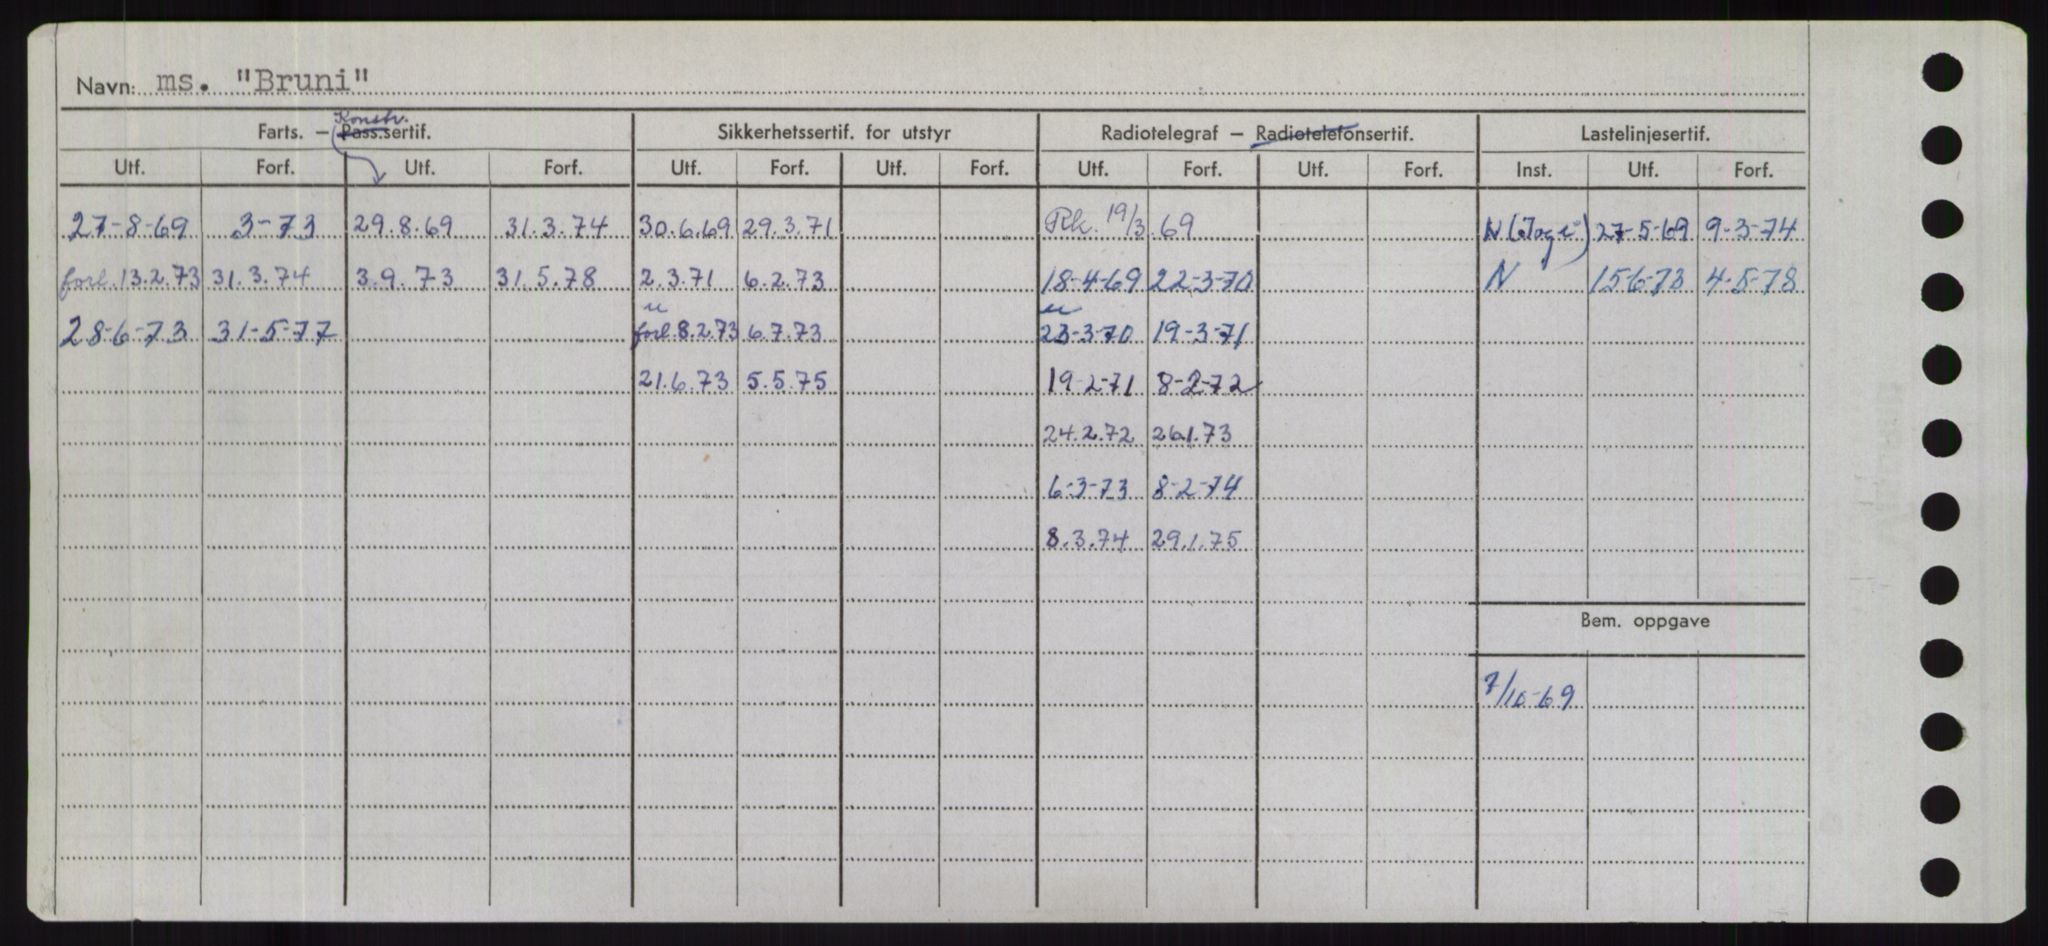 Navn: ms. "Bruni"
Konstr.
Farts. – Pass.sertif. Sikkerhetssertif. for utstyr Radiotelegraf – Radiotelefonsertif. Lastelinjesertif.
Utf. Forf. Utf. Forf. Utf. Forf. Utf. Forf. Utf. Forf. Utf. Forf. Inst. Utf. Forf.
27-8-69 3-73 29.8.69 31.3.74 30.6.69 29.3.71 19/3.69 N 27-5-69 9-3-74
forl. 13.2.73 31.3.74 3.9.73 31.5.78 2.3.71 6.2.73 18-4-69 22-3-70 N 15-6-73 4-5-78
28-6-73 31-5-77 forl. 8.2.73 6.7.73 23-3-70 19-3-71
21.6.73 5.5.75 19-2-71 8-2-72
24.2.72 26.1.73
6-3-73 8-2-74
8.3.74 29.1.75
Bem. oppgave
7/10-69